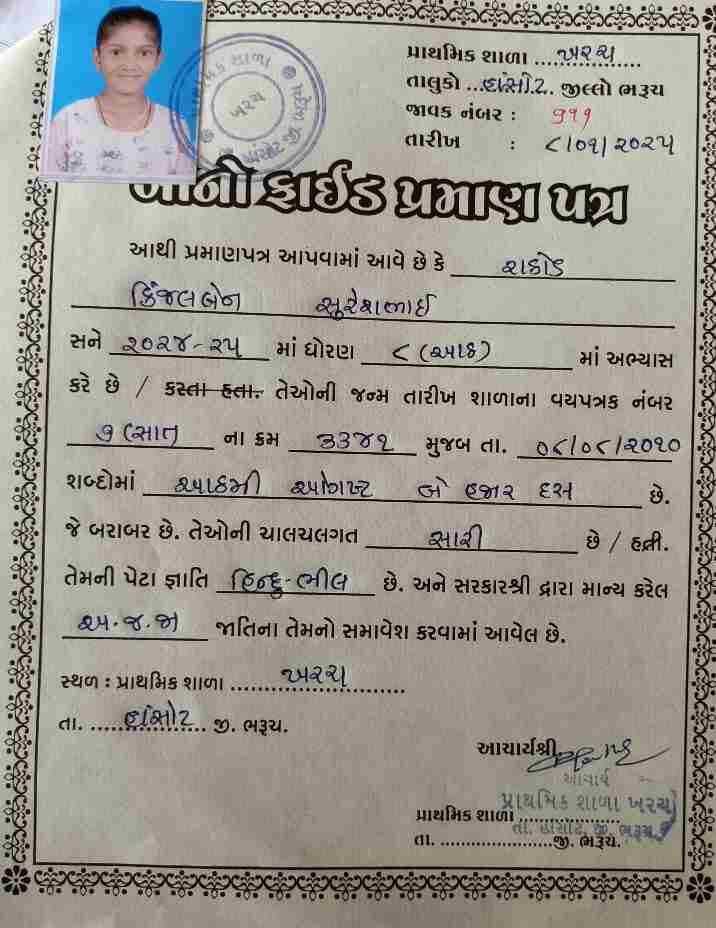 પ્રાથમિક શાળા ખરચ
તાલુકો હાંસોટ જીલ્લો ભરૂચ
જાવક નંબર : ૧૧૧
તારીખ : ૮/૦૧/૨૦૨૫
પ્રાથમિક શાળા
ખરચ
બોનો ફાઈડ પ્રમાણ પત્ર
આથી પ્રમાણપત્ર આપવામાં આવે છે કે રાઠોડ
કિંજલબેન સુરેશભાઈ
સને ૨૦૨૪-૨૫ માં ધોરણ ૮ (આઠ) માં અભ્યાસ
કરે છે / કરતા હતા. તેઓની જન્મ તારીખ શાળાના વયપત્રક નંબર
૭ (સાત) ના ક્રમ ૩૩૪૧ મુજબ તા. ૦૮/૦૮/૨૦૧૦
શબ્દોમાં આઠમી ઓગષ્ટ બે હજાર દસ છે.
જે બરાબર છે. તેઓની ચાલચલગત સારી છે / હતી.
તેમની પેટા જ્ઞાતિ હિન્દુ-ભીલ છે. અને સરકારશ્રી દ્વારા માન્ય કરેલ
અ.જ.જા જાતિના તેમનો સમાવેશ કરવામાં આવેલ છે.
સ્થળ : પ્રાથમિક શાળા ખરચ
તા. હાંસોટ જી. ભરૂચ.
આચાર્યશ્રી
આચાર્ય
પ્રાથમિક શાળા ખરચ
પ્રાથમિક શાળા
તા. હાંસોટ, જી. ભરૂચ
તા. જી. ભરૂચ.